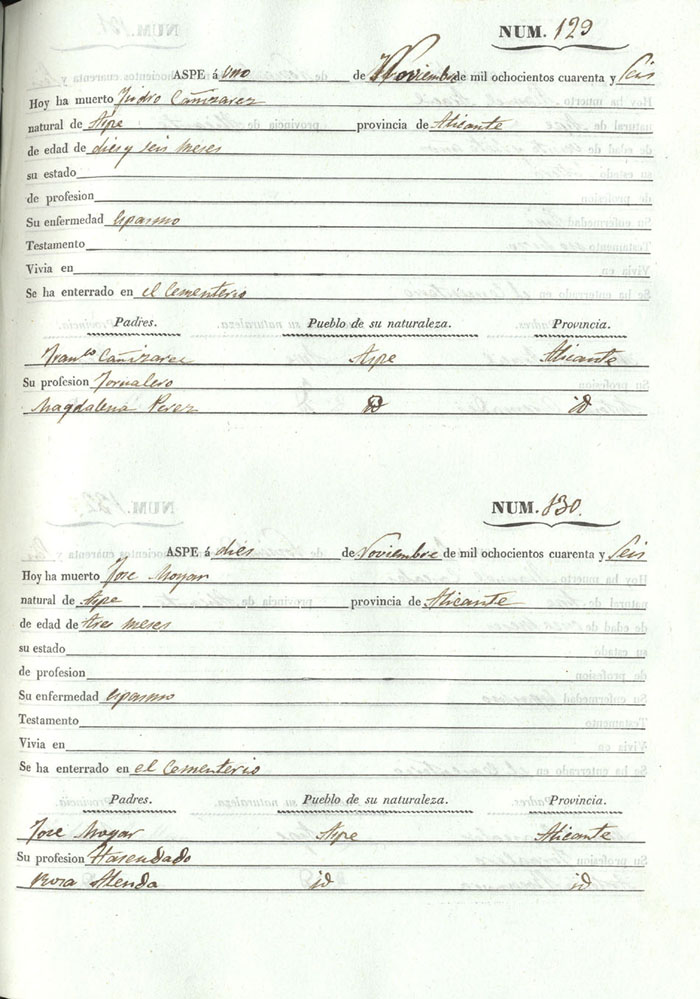 NUM. 129
ASPE á uno de Noviembre de mil ochocientos cuarenta y Seis
Hoy ha muerto Isidro Cañizarez
natural de Aspe provincia de Alicante
de edad de dies y seis meses
su estado
de profesion
Su enfermedad espasmo
Testamento
Vivia en
Se ha enterrado en el Cementerio
Padres. Pueblo de su naturaleza. Provincia.
Fran.co Cañizarez Aspe Alicante
Su profesion Jornalero
Magdalena Perez id id
NUM. 130.
ASPE á dies de Noviembre de mil ochocientos cuarenta y Seis
Hoy ha muerto Jose
natural de Aspe provincia de Alicante
de edad de tres meses
su estado
de profesion
Su enfermedad espasmo
Testamento
Vivia en
Se ha enterrado en el Cementerio
Padres. Pueblo de su naturaleza. Provincia.
Jose Aspe Alicante
Su profesion Hasendado
Rosa id id